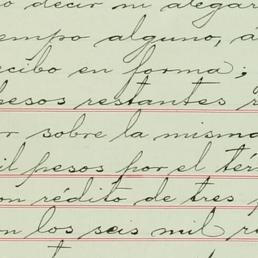 o decir ni alegar
empo alguno, a
ecibo en forma;
pesos restantes r
r sobre la misma
il pesos por el tér
on rédito de tres p
on los seis mil r